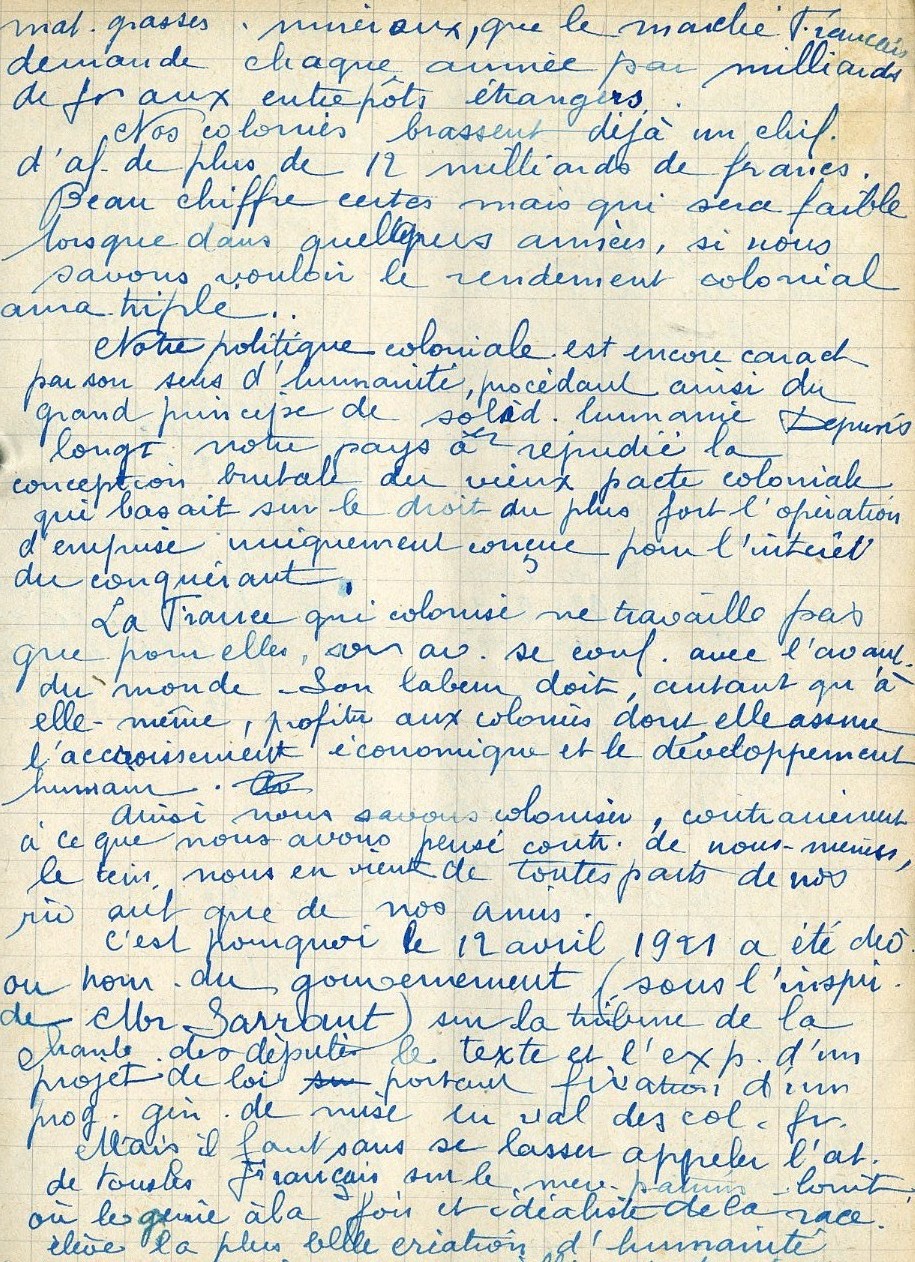 mat. grasses. minéraux, que le marché Français
demande chaque année par milliards
de fr aux entrepôts étrangers.
Nos colonies brassent déjà un chif.
d'af. de plus de 12 milliards de francs.
Beau chiffre certes mais qui sera faible
lorsque dans quelques années, si nous
savons vouloir le rendement colonial
aura triplé..
Notre politique coloniale est encore caract
par son sens d'humanité, procédant ainsi du
grand principe de solid. humanie Depuis
longt notre pays a répudié la
conception brutale du vieux pacte coloniale
qui basait sur le droit du plus fort l'opération
d'emprise uniquement conçue pour l'intérêt
du conquérant.
La France qui colonise ne travaille pas
que pour elles, son av. se conf. avec l'avant.
du monde - Son labeur doit, autant qu'à
elle-même, profiter aux colonies dont elle assume
l'accroissement économique et le développement
humain.
Ainsi nous savons coloniser, contrairement
à ce que nous avons pensé contr. de nous-mêmes,
le tém. nous en vient de toutes parts de nos
riv aut que de nos amis.
C'est pourquoi le 12 avril 1921 a été dép.
au nom du gouvernement (sous l'inspi.
de Mr Sarraut) sur la tribune de la
chambe des députés le texte et l'exp. d'un
projet de loi su portant fixation d'un
prog. gén. de mise en val des col. fr.
Mais il faut sans se lasser appeler l'at.
de tous les Français sur le
où le génie à la fois et idéaliste de la race.
élève la plus belle création d'humanité